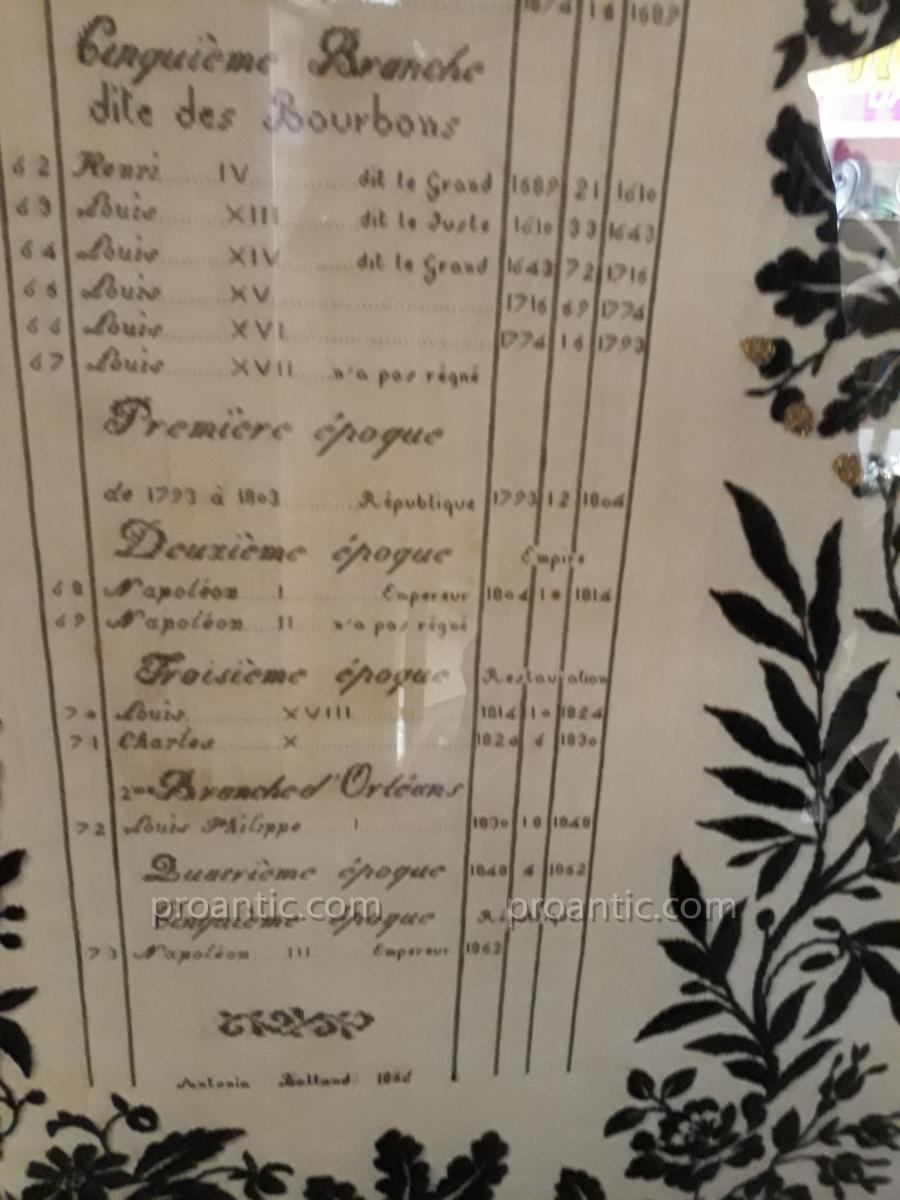 1689
Cinquième Branche
dite des Bourbons
62 Henri IV dit le Grand 1589 21 1610
63 Louis XIII dit le Juste 1610 33 1643
64 Louis XIV dit le Grand 1643 72 1715
65 Louis XV 1715 59 1774
66 Louis XVI 1774 16 1793
67 Louis XVII n'a pas régné
Première époque
de 1793 à 1803 République 1793 12 1804
Deuxième époque Empire
68 Napoléon I Empereur 1804 10 1814
69 Napoléon II n'a pas régné
Troisième époque Restauration
70 Louis XVIII 1814 10 1824
71 Charles X 1824 6 1830
2me Branche d'Orléans
72 Louis Philippe I 1830 18 1848
Quatrième époque 1848 4 1852
Cinquième époque
73 Napoléon III Empereur 1852
Antonia Balland
proantic.com proantic.com